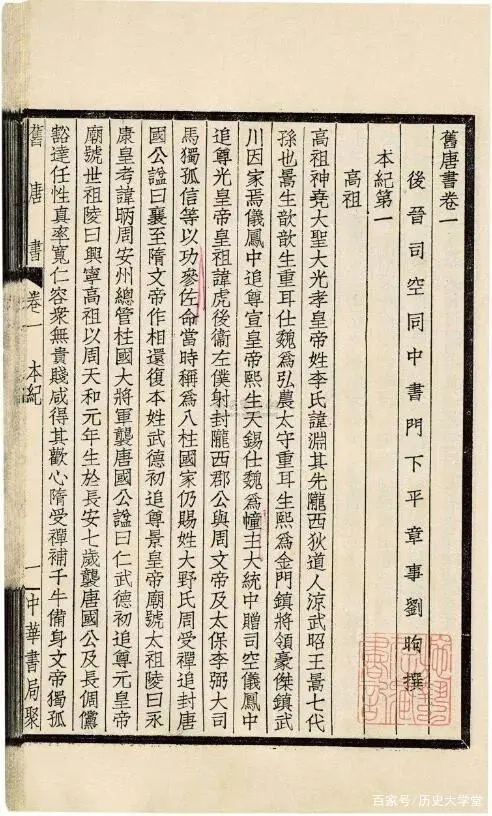 舊唐書卷一
後晉司空同中書門下平章事劉昫撰
本紀第一
高祖
高祖神堯大聖大光孝皇帝姓李氏諱淵其先隴西狄道人涼武昭王暠七代
孫也暠生歆歆生重耳仕魏爲弘農太守重耳生熙爲金門鎮將領豪傑鎮武
川因家焉儀鳳中追尊宣皇帝熙生天錫仕魏爲幢主大統中贈司空儀鳳中
追尊光皇帝皇祖諱虎後衞左僕射封隴西郡公與周文帝及太保李弼大司
馬獨孤信等以功參佐命當時稱爲八柱國家仍賜姓大野氏周受禪追封唐
國公諡曰襄至隋文帝作相還復本姓武德初追尊景皇帝廟號太祖陵曰永
康皇考諱昞周安州總管柱國大將軍襲唐國公諡曰仁武德初追尊元皇帝
廟號世祖陵曰興寧高祖以周天和元年生於長安七歲襲唐國公及長倜儻
豁達任性真率寬仁容衆無貴賤咸得其歡心隋受禪補千牛備身文帝獨孤
舊唐書 卷一 本紀 一 中華書局聚
百家号/历史大学堂